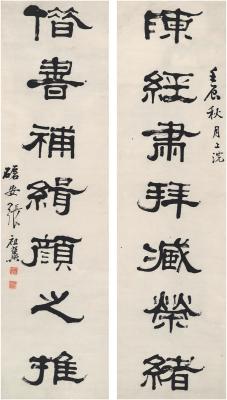 陳經肅拜臧榮緒
壬辰秋月上浣
借書補緝顏之推
磊安張祖翼